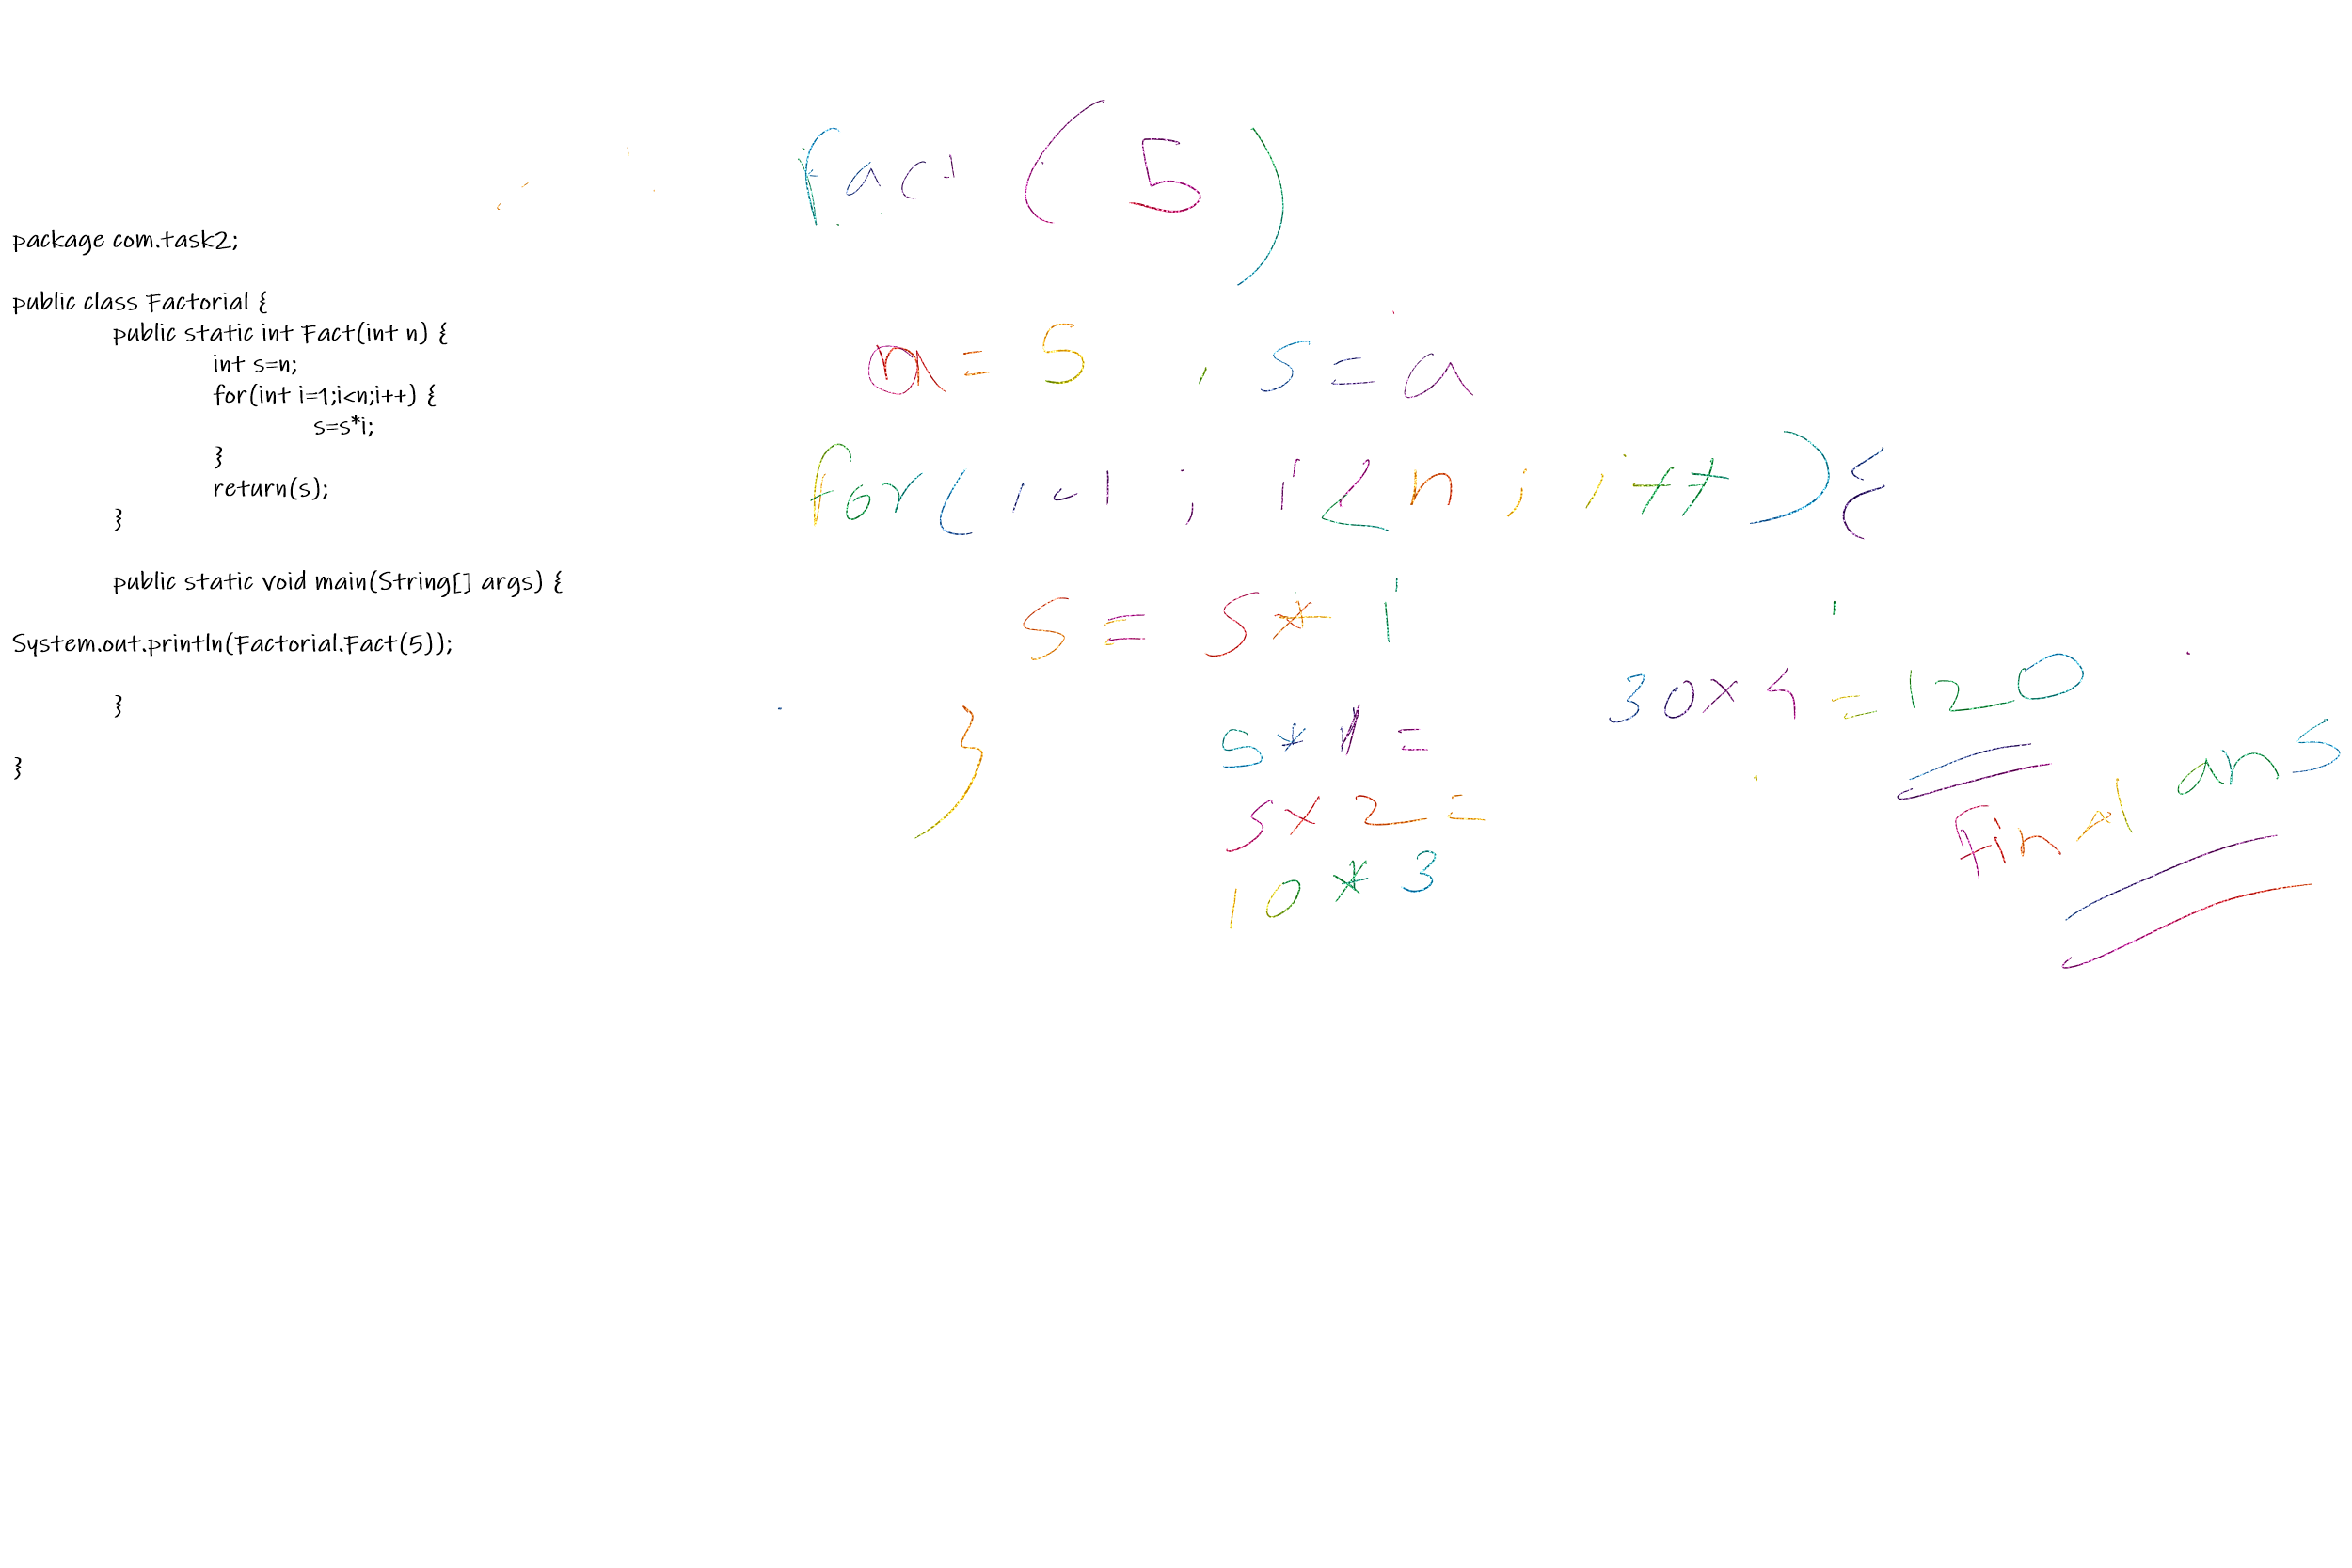 package com.task2;
public class Factorial {
public static int Fact(int n) {
int s=n;
for(int i=1;i<n;i++) {
s=s*i;
}
return(s);
}
public static void main(String[] args) {
System.out.println(Factorial.Fact(5));
}
}
fact (5)
n = 5 , s = a
for(i=1 ; i<n ; i++){
s = s * i
}
5 * 1 =
5 x 2 =
10 * 3
30 x 4 = 120
Final ans